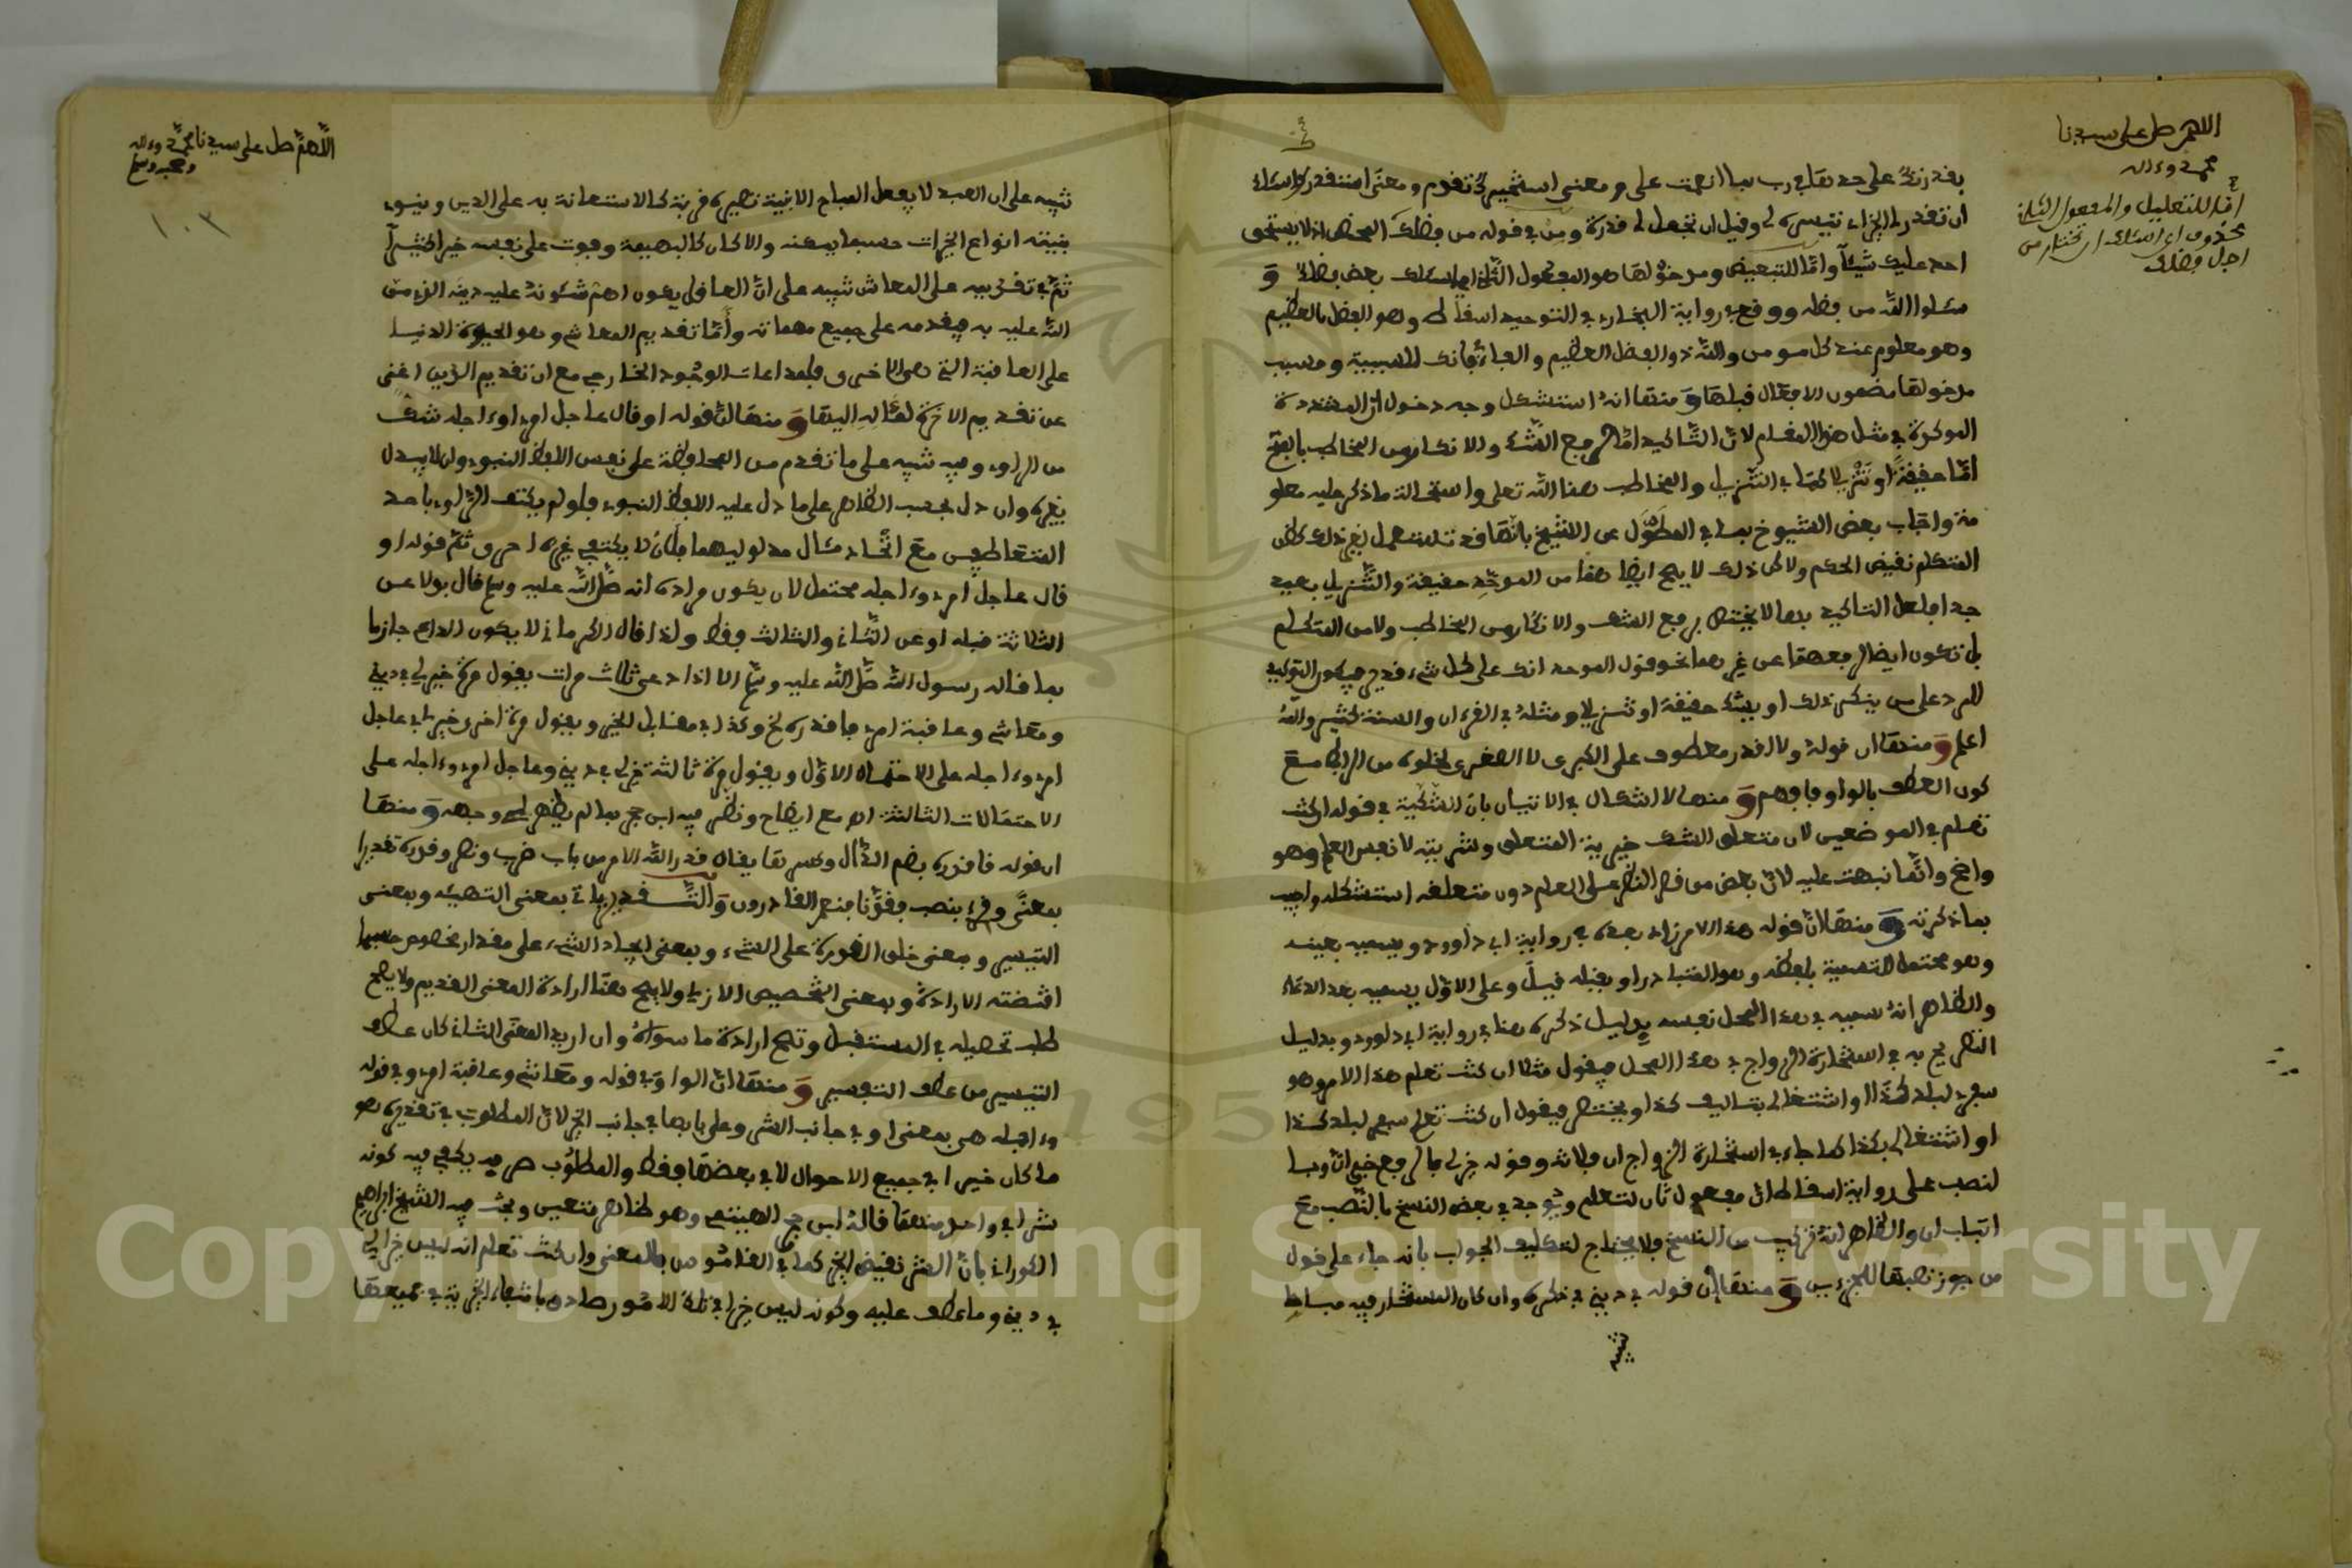 اللهم صل على سيدنا
محمد وءاله
اما للتعليل والمفعول الثاني
محذوف اي اسئلك ان تختار من
اجل فضلك
بقدرتك على حد تعالى رب بما انعمت علي ومعنى استخيرك تقدم ومعنى استقدرك اسئلك
ان تقدر لي الخير اي تيسره لي وقيل ان تجعل لي قدرة ومن في قوله من فضلك المحض اذ لا يستحق
احد عليك شيئا واما للتبعيض ومدخولها هو المفعول الثاني اي اسئلك بعض فضلك و
سئلوا الله من فضله ووقع في رواية البخاري في التوحيد اسقاطه وهو الفضل بالعظيم
وهو معلوم عند كل مومن والله ذو الفضل العظيم والفاء في فانك للسببية ومسبب
مدخولها مضمون الافعال قبلها ومنها انه استشكل وجه دخول ان المشددة
الموكدة في مثل هذا المقام لان التاكيد اما لرفع الشك والانكار من المخاطب بالفتح
اما حقيقة او تنزيلا كما في التنزيل والمخاطب هنا الله تعالى واستحالة ما ذكر عليه معلو
مة واجاب بعض الشيوخ بما في المطول عن الشيخ بانها قد تستعمل لغير ذلك كظن
المتكلم نقيض الحكم ولا كن ذلك لا يصح ايضا هنا من الموحد حقيقة والتنزيل بعيد
جدا فلعل التاكيد بها لا يختص برفع الشك والانكار من المخاطب ولا من المتكلم
بل تكون ايضا لرفعهما عن غيرهما نحو قول الموحد انك على كل شيء قدير فيكون التوكيد
للرد على من ينكر ذلك او يشك حقيقة او تنزيلا ومثله في القرءان والسنة كثير والله
اعلم ومنها ان قوله ولا اقدر معطوف على الكبرى لا الصغرى لخلوه من الرابط مع
كون العطف بالواو فافهم ومنها لا اشكال في الاتيان بان الشكية في قوله ان كنت
تعلم في الموضعين لان متعلق الشك خيرية المتعلق وشريته لا نفس العلم وهو
واضح وانما نبهت عليه لان بعض من قصر النظر على العلم دون متعلقه استشكله واجيب
بما ذكرته ومنها ان قوله هذا الامر زاد بعده في رواية ابي داوود ويسميه بعينه
وهو محتمل التسمية بلفظه وهو المتبادر او بقلبه قيل وعلى الاول يسميه بعد الدعاء
والظاهر انه يسميه في هذا المحل نفسه بدليل ذكره هنا في رواية ابي داوود وبدليل
التصريح به في استخارة الزواج في هذا المحل فيقول مثلا ان كنت تعلم هذا الامر وهو
سفري لبلد كذا او اشتغالي بتاليف كذا او يختصر فيقول ان كنت تعلم سفري لبلد كذا
او اشتغالي بكذا كما جاء في استخارة الزواج ان فلانة وقوله خير لي بالرفع خبر ان وبا
لنصب على رواية اسقاط ان مفعول ثان لتعلم ويوجد في بعض النسخ بالنصب مع
اثبات ان والظاهر انه تركيب من النسخ فلا يحتاج لتكليف الجواب بانه جاء على قول
من جوز نصبها للجزءين ومنها ان قوله في ديني في ذكره وان كان المستخار فيه مباحا
تنبيه
اللهم صل على سيدنا محمد وءاله
وصحبه وسلم
١٠٣
تنبيه على ان العبد لا يفعل المباح الا بنية تصيره قربة كالاستعانة به على الدين وينوي
بنيته انواع الخيرات حسبما يمكنه والا كان كالبهيمة وفوت على نفسه خيرا كثيرا
ثم في تقديمه على المعاش تنبيه على ان العاقل يكون اهم شئونه عليه دينه الذي من
الله عليه به فيقدمه على جميع مهماته واما تقديم المعاش وهو الحيوة الدنيا
على العاقبة التي هي الاخرى فلمراعات الوجود الخارجي مع ان تقديم الدين اغنى
عن تقديم الاخرة لمثاله اليها ومنها ان قوله او قال عاجل امري وءاجله شك
من الراوي وفيه تنبيه على ما تقدم من المحافظة على نفس اللفظ النبوي وان لا يبدل
بغيره وان دل بحسب الظاهر على ما دل عليه اللفظ النبوي فلو لم يكتف الراوي باحد
المتعاطفين مع اتحاد مئال مدلوليهما فلان لا يكتفي بغيره احرى ثم قوله او
قال عاجل امري وءاجله محتمل لان يكون مراده انه صلى الله عليه وسلم قال بدلا عن
الثلاثة قبله او عن الثاني والثالث فقط ولذا قال الكرماني لا يكون الداعي جازما
بما قاله رسول الله صلى الله عليه وسلم الا اذا دعى ثلاث مرات يقول مرة خير لي في ديني
ومعاشي وعاقبة امري فاقدره لخ وكذا في مقابل الخير ويقول مرة اخرى خير لي في عاجل
امري وءاجله على الاحتمال الاول ويقول مرة ثالثة خير لي في ديني وعاجل امري وءاجله على
الاحتمالات الثالثة اهـ مع ايضاح ونظر فيه ابن حجر بما لم يظهر لي وجهه ومنها
ان قوله فاقدره بضم الدال وكسرها يقال قدر الله الامر من باب ضرب ونصر وقدره تقديرا
بمعنى وقرئ بنصب فقدرنا فنعم القادرون والتقدير ياتي بمعنى التهيئة وبمعنى
التيسير وبمعنى خلق القدرة على الشيء وبمعنى ايجاد الشيء على مقدار مخصوص حسبما
اقتضته الارادة وبمعنى التخصيص الازلي ولا يصح هنا ارادة المعنى القديم ولا يصح
طلب تحصيله في المستقبل وتصح ارادة ما سواه وان اريد المعنى الثاني كان عطف
التيسير من عطف التفسير ومنها ان الواو في قوله ومعاشي وعاقبة امري وفي قوله
وءاجله هي بمعنى او في جانب الشر وعلى بابها في جانب الخير لان المطلوب في تقديره هو
ما كان خيرا في جميع الاحوال لا في بعضها فقط والمطلوب صرفه يكفي فيه كونه
شرا في واحد منها قاله ابن حجر الهيتمي وهو ظاهر متعين وبحث فيه الشيخ ابراهيم
الكوراني بان الشر نقيض الخير كما في القاموس فالمعنى وان كنت تعلم انه ليس خيرا لي
في ديني وما عطف عليه وكونه ليس خيرا في تلك الامور صادق بانتفاء الخيرية في جميعها